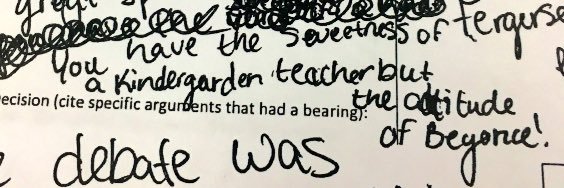 great
You have the sweetness of
a Kindergarden teacher but
the attitude
of Beyonce!
ecision (cite specific arguments that had a bearing):
debate was